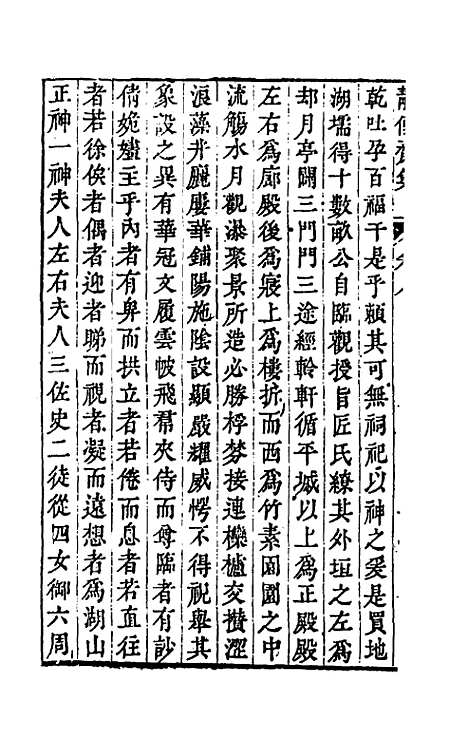 乾吐孕百福干是乎頼其可無祠祀以神之爰是買地
湖壖得十數畝公自臨觀授旨匠氏繚其外垣之左爲
却月亭闢三門門三途經軨軒循平城以上爲正殿殿
左右爲廊殿後爲寢上爲樓折而西爲竹素園園之中
流觴水月觀瀑聚景所造必勝桴棼接連櫟櫨交攢澀
浪藻井麗廔華鋪陽施陰設顯嚴耀威愕不得視舉其
象設之異有華冠文履雲帔飛帬夾侍而母臨者有訬
倩嫓嫿主乎內者有䠶而拱立者若倦而息者若直往
者若徐俟者偶者迎者睇而視者凝而遠想者爲湖山
正神一神夫人左右夫人三佐史二徒從四女御六周